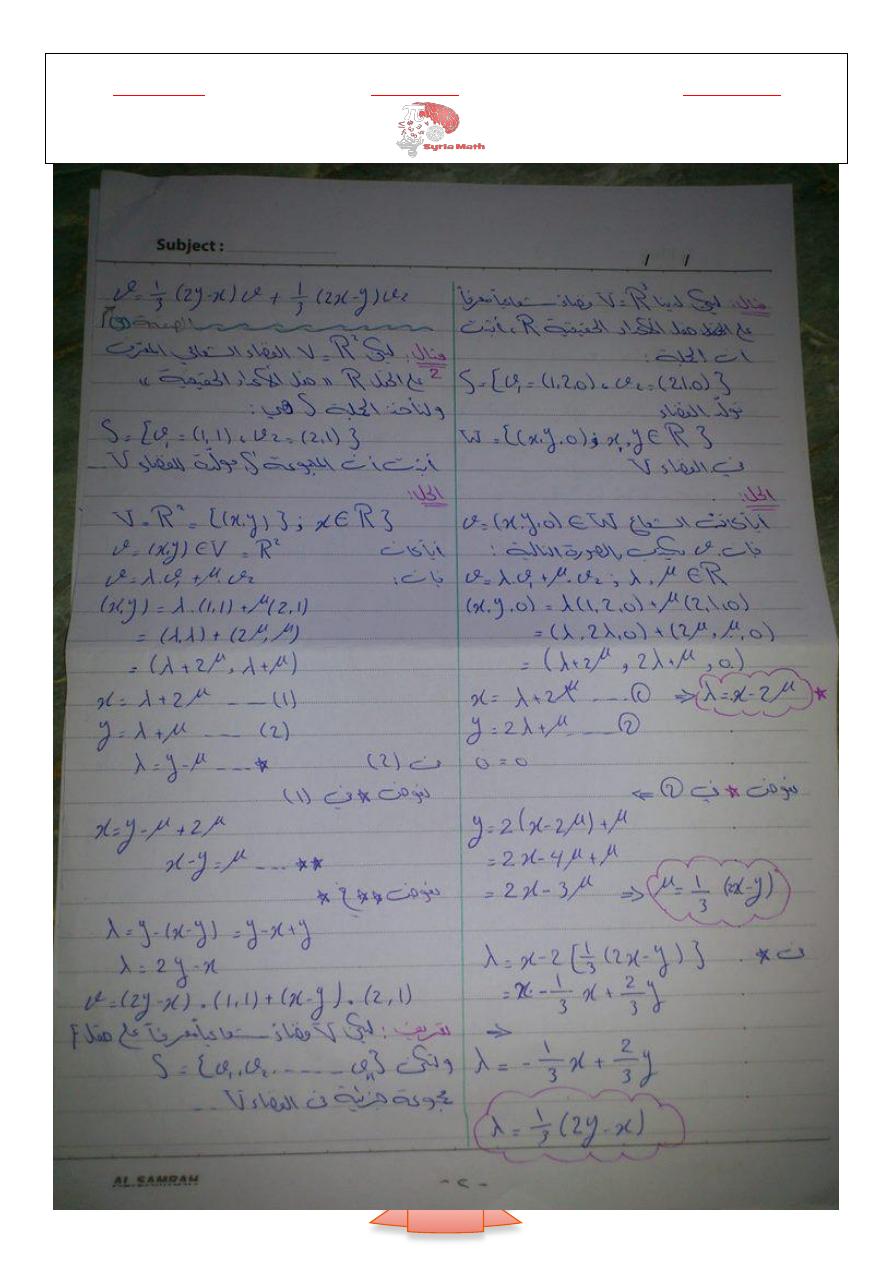 Syria Math
Subject :
/ /
مثال: ليكن لدينا V = R³ فضاء شعاعياً معرفاً
على الحقل حقل الأعداد الحقيقية R، أثبت
أن الجملة:
S = {v₁ = (1,2,0), v₂ = (2,1,0)}
تولد الفضاء
W = {(x,y,0) ; x,y ∈ R}
في الفضاء V
الحل:
أياً كانت الشعاع v = (x,y,0) ∈ W
فإن v يكتب بالصورة التالية:
v = λv₁ + μ.v₂ ; λ, μ ∈ R
(x,y,0) = λ(1,2,0) + μ(2,1,0)
= (λ,2λ,0) + (2μ,μ,0)
= (λ+2μ, 2λ+μ, 0)
x = λ+2μ ---- ① ⇒ λ = x-2μ ★
y = 2λ+μ ---- ②
0 = 0
نعوض ★ في ② ⇐
y = 2(x-2μ)+μ
= 2x-4μ+μ
= 2x-3μ ⇒ μ = 1/3 (2x-y)
في ★ λ = x-2 [1/3 (2x-y)}
= x - 1/3 x + 2/3 y
⇒
λ = -1/3 x + 2/3 y
λ = 1/3 (2y-x)
v = 1/3 (2y-x) v + 1/3 (2x-y) v₂
مثال 2: ليكن V = R² الفضاء الشعاعي المعرف
على الحقل R « حقل الأعداد الحقيقية »
ولنأخذ الجملة S هي:
S = {v₁ = (1,1), v₂ = (2,1)}
أثبت أن المجموعة S مولدة للفضاء V
الحل:
V = R² = {(x,y)} ; x ∈ R}
أياً كانت v = (x,y) ∈ V = R²
فإن: v = λ.v₁ + μ.v₂
(x,y) = λ.(1,1) + μ(2,1)
= (λ,λ) + (2μ,μ)
= (λ+2μ, λ+μ)
x = λ+2μ ---- (1)
y = λ+μ ---- (2)
من (2) λ = y-μ ---- ★
نعوض ★ في (1)
x = y-μ+2μ
x-y = μ ---- ★★
نعوض ★★ في ★
λ = y-(x-y) = y-x+y
λ = 2y-x
v = (2y-x).(1,1) + (x-y).(2,1)
تعريف: ليكن V فضاء شعاعياً معرفاً على حقل F
ولتكن S = {v₁, v₂ ------ vₙ}
مجموعة جزئية من الفضاء V ...
AL SAMRAH
- ٢ -